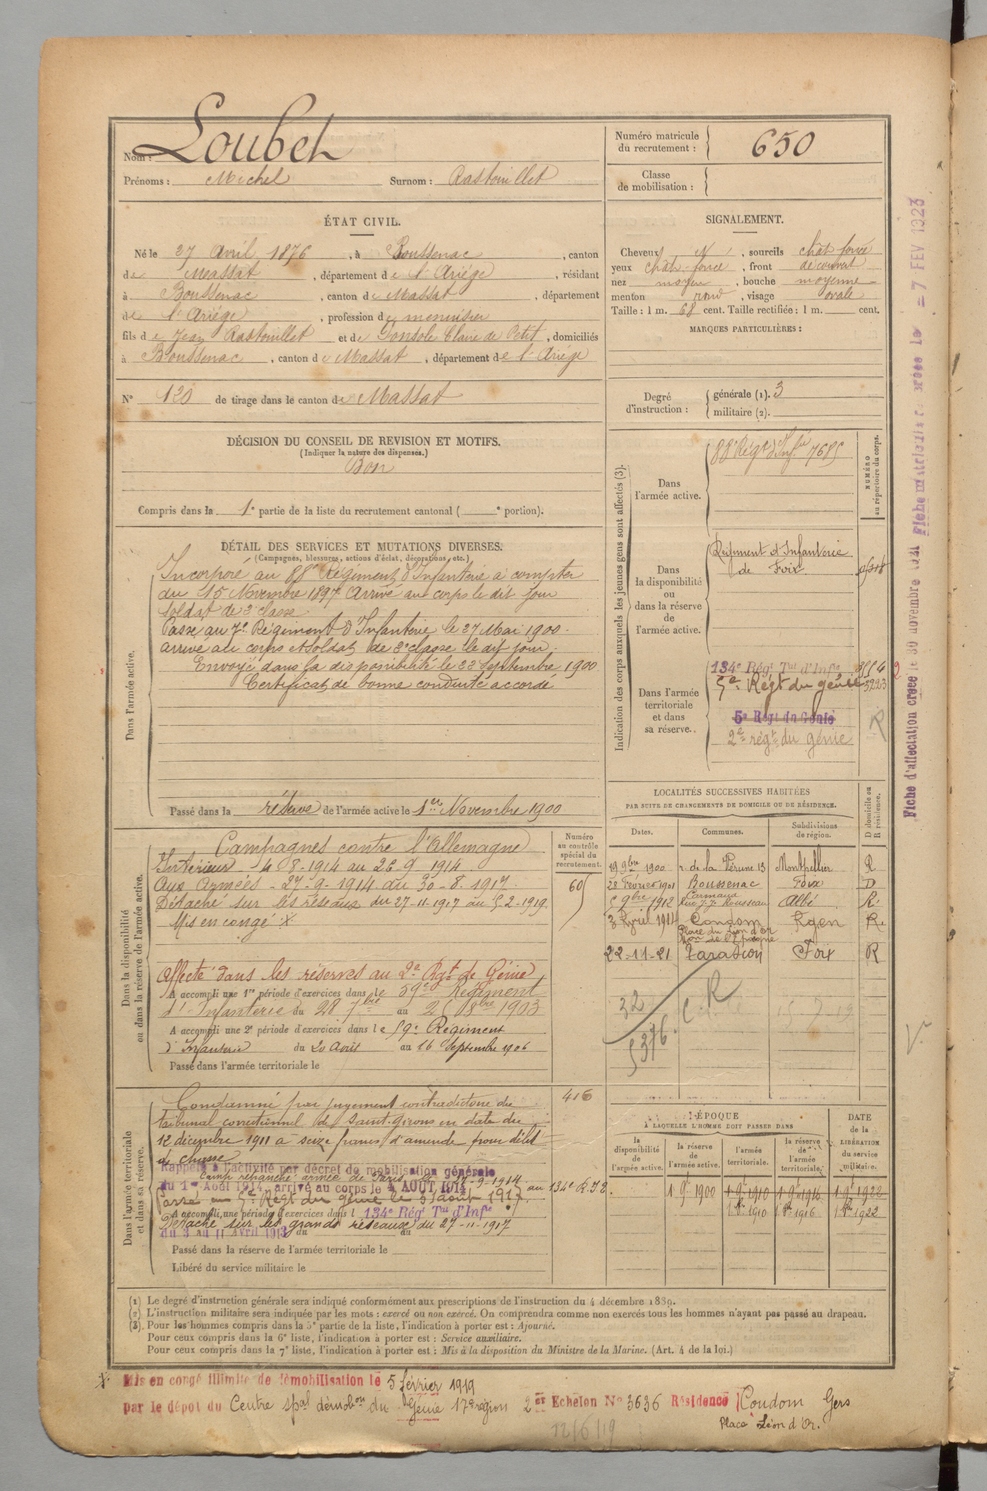 Nom : Loubet
Prénoms : Michel Surnom : Rastouillet
Numéro matricule du recrutement : 650
Classe de mobilisation :
ÉTAT CIVIL.
Né le 27 Avril 1876, à Boussenac, canton
de Massat, département de l'Ariège, résidant
à Boussenac, canton de Massat, département
de l'Ariège, profession de menuisier
fils de Jean Rastouillet et de Gonsole Claire de Petit, domiciliés
à Boussenac, canton de Massat, département de l'Ariège
N° 130 de tirage dans le canton de Massat
SIGNALEMENT.
Cheveux N, sourcils chât foncé
yeux chât. foncé, front découvert
nez moyen, bouche moyenne
menton rond, visage ovale
Taille : 1 m. 68 cent. Taille rectifiée : 1 m. cent.
MARQUES PARTICULIÈRES :
Degré d'instruction : générale (1). 3
militaire (2).
DÉCISION DU CONSEIL DE REVISION ET MOTIFS.
(Indiquer la nature des dispenses.)
Bon
Compris dans la 1e partie de la liste du recrutement cantonal ( e portion).
DÉTAIL DES SERVICES ET MUTATIONS DIVERSES.
(Campagnes, blessures, actions d'éclat, décorations, etc.)
Dans l'armée active.
Incorporé au 88e Régiment d'Infanterie à compter
du 15 Novembre 1897. Arrivé au corps le dit jour
soldat de 2e classe.
Passé au 7e Régiment d'Infanterie le 27 Mai 1900.
arrivé au corps et soldat de 2e classe le dit jour.
Envoyé dans la disponibilité le 22 Septembre 1900
Certificat de bonne conduite accordé
Passé dans la réserve de l'armée active le 1er Novembre 1900
Indication des corps auxquels les jeunes gens sont affectés (3).
NUMÉRO au répertoire du corps.
Dans l'armée active.
88e Régt d'Infie 7685
Dans la disponibilité ou dans la réserve de l'armée active.
Régiment d'Infanterie
de Foix
Dans l'armée territoriale et dans sa réserve.
134e Régt Tal d'Infie
5e Régt du génie 5223
5e Régt du Génie
2e régt du génie
R
Dans la disponibilité ou dans la réserve de l'armée active.
Numéro au contrôle spécial du recrutement.
Campagnes contre l'Allemagne
Intérieur 4-8-1914 au 26 9 1914
Aux Armées - 27-9-1914 au 30-8-1917
Détaché sur les réseaux du 27-11-1917 au 5-2-1919
Mis en congé X
Affecté dans les réserves au 2e Rgt de Génie
A accompli une 1re période d'exercices dans le 59e Régiment
d'Infanterie du 28 7bre au 25 8bre 1903
A accompli une 2e période d'exercices dans le 59e Régiment
d'Infanterie du 20 Août au 16 Septembre 1906
Passé dans l'armée territoriale le
LOCALITÉS SUCCESSIVES HABITÉES
PAR SUITE DE CHANGEMENTS DE DOMICILE OU DE RÉSIDENCE.
Dates. Communes. Subdivisions de région. D domicile ou R résidence.
19 9bre 1900 r. de la Vérune 13 Montpellier R
28 Février 1901 Boussenac Foix D
9bre 1912 Carmaux rue J-J. Rousseau Albi R.
3 Avril 1914 Condom Place du Lion d'Or Agen R.
22-11-21 Tarascon Foix R
32
5376
R
Dans l'armée territoriale et dans sa réserve.
416
Condamné par jugement contradictoire du
tribunal correctionnel de Saint-Girons en date du
12 décembre 1911 à seize francs d'amende pour délit
de chasse
Rappelé à l'activité par décret de mobilisation générale
Camp retranché armée de Paris
du 1er Août 1914, arrivé au corps le 4 AOUT 1914
Passé au 5e Régt du génie le
A accompli une période d'exercices dans l 134e Régt Tal d'Infie
Détaché sur les grands réseaux du 27-11-1917
du 3 au 11 Avril 1913 du au
Passé dans la réserve de l'armée territoriale le
Libéré du service militaire le
ÉPOQUE
À LAQUELLE L'HOMME DOIT PASSER DANS
DATE de la LIBÉRATION du service militaire.
la disponibilité de l'armée active. la réserve de l'armée active. l'armée territoriale. la réserve de l'armée territoriale.
1 9 1900 1 9 1910 1 9 1916 1 9 1922
1 8bre 1910 1 8bre 1916 1 8bre 1922
(1) Le degré d'instruction générale sera indiqué conformément aux prescriptions de l'instruction du 4 décembre 1889.
(2) L'instruction militaire sera indiquée par les mots : exercé ou non exercé. On comprendra comme non exercés tous les hommes n'ayant pas passé au drapeau.
(3) Pour les hommes compris dans la 5e partie de la liste, l'indication à porter est : Ajourné.
Pour ceux compris dans la 6e liste, l'indication à porter est : Service auxiliaire.
Pour ceux compris dans la 7e liste, l'indication à porter est : Mis à la disposition du Ministre de la Marine. (Art. 4 de la loi.)
Mis en congé illimité de démobilisation le 5 février 1919
par le dépôt du Centre spal démobon du Génie 17e région 2er Echelon N° 3636 Résidence Condom Gers
Place Lion d'Or.
12/6/19
Fiche d'affectation créée le 30 novembre 1921 Fiche matricule créée le = 7 FEV 1923